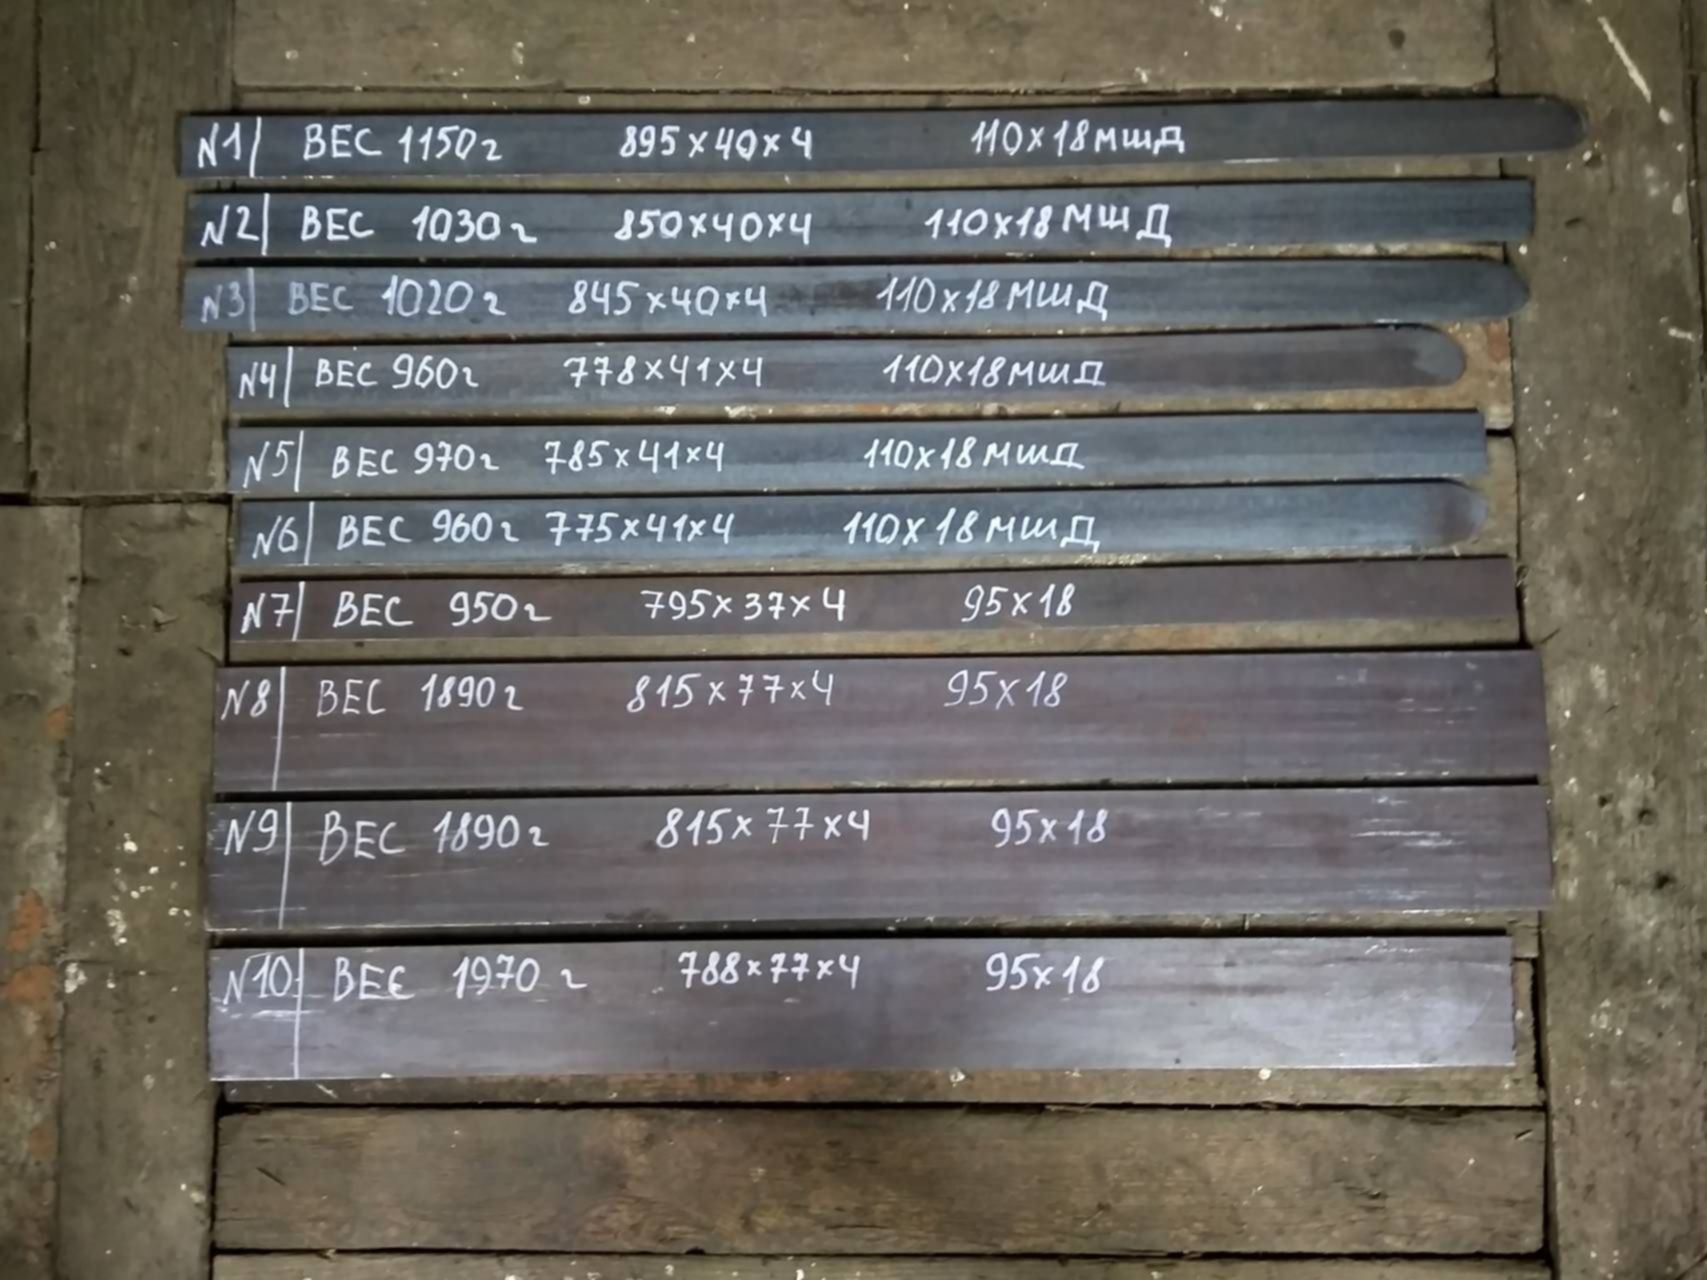 N1| ВЕС 1150г 895×40×4 110×18МШД
N2| ВЕС 1030г 850×40×4 110×18МШД
N3| ВЕС 1020г 845×40×4 110×18МШД
N4| ВЕС 960г 778×41×4 110×18МШД
N5| ВЕС 970г 785×41×4 110×18МШД
N6| ВЕС 960г 775×41×4 110×18МШД
N7| ВЕС 950г 795×37×4 95×18
N8| ВЕС 1890г 815×77×4 95×18
N9| ВЕС 1890г 815×77×4 95×18
N10| ВЕС 1970г 788×77×4 95×18